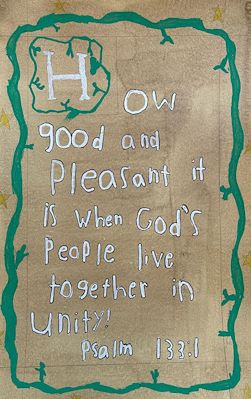 How
good and
Pleasant it
is when God's
People live
together in
unity!
Psalm 133:1